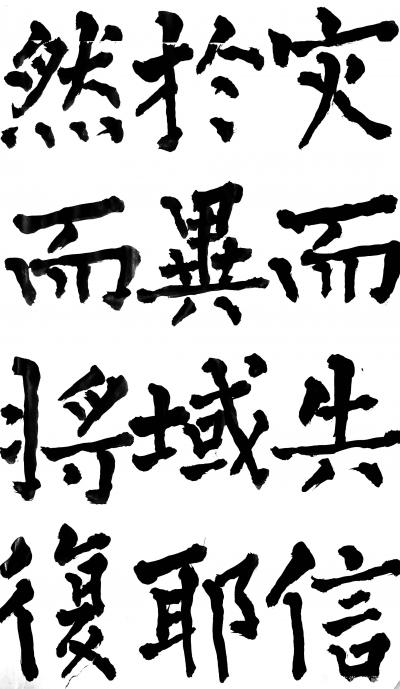 灾而共信
於異域耶
然而將復